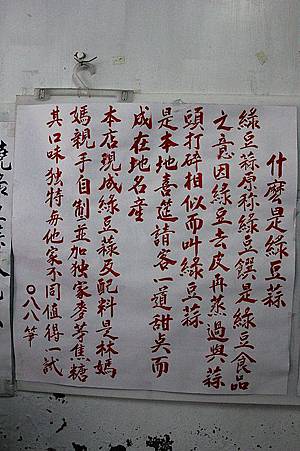 什麼是綠豆蒜
綠豆蒜原称綠豆饌是綠豆食品
之意因綠豆去皮再蒸過與蒜
頭打碎相似而叫綠豆蒜
是本地喜筵請客一道甜点而
成在地名産
本店現成綠豆蒜及配料是林媽
媽親手自製並加独家麥芽焦糖
其口味独特与他家不同值得一試
〇八八筆